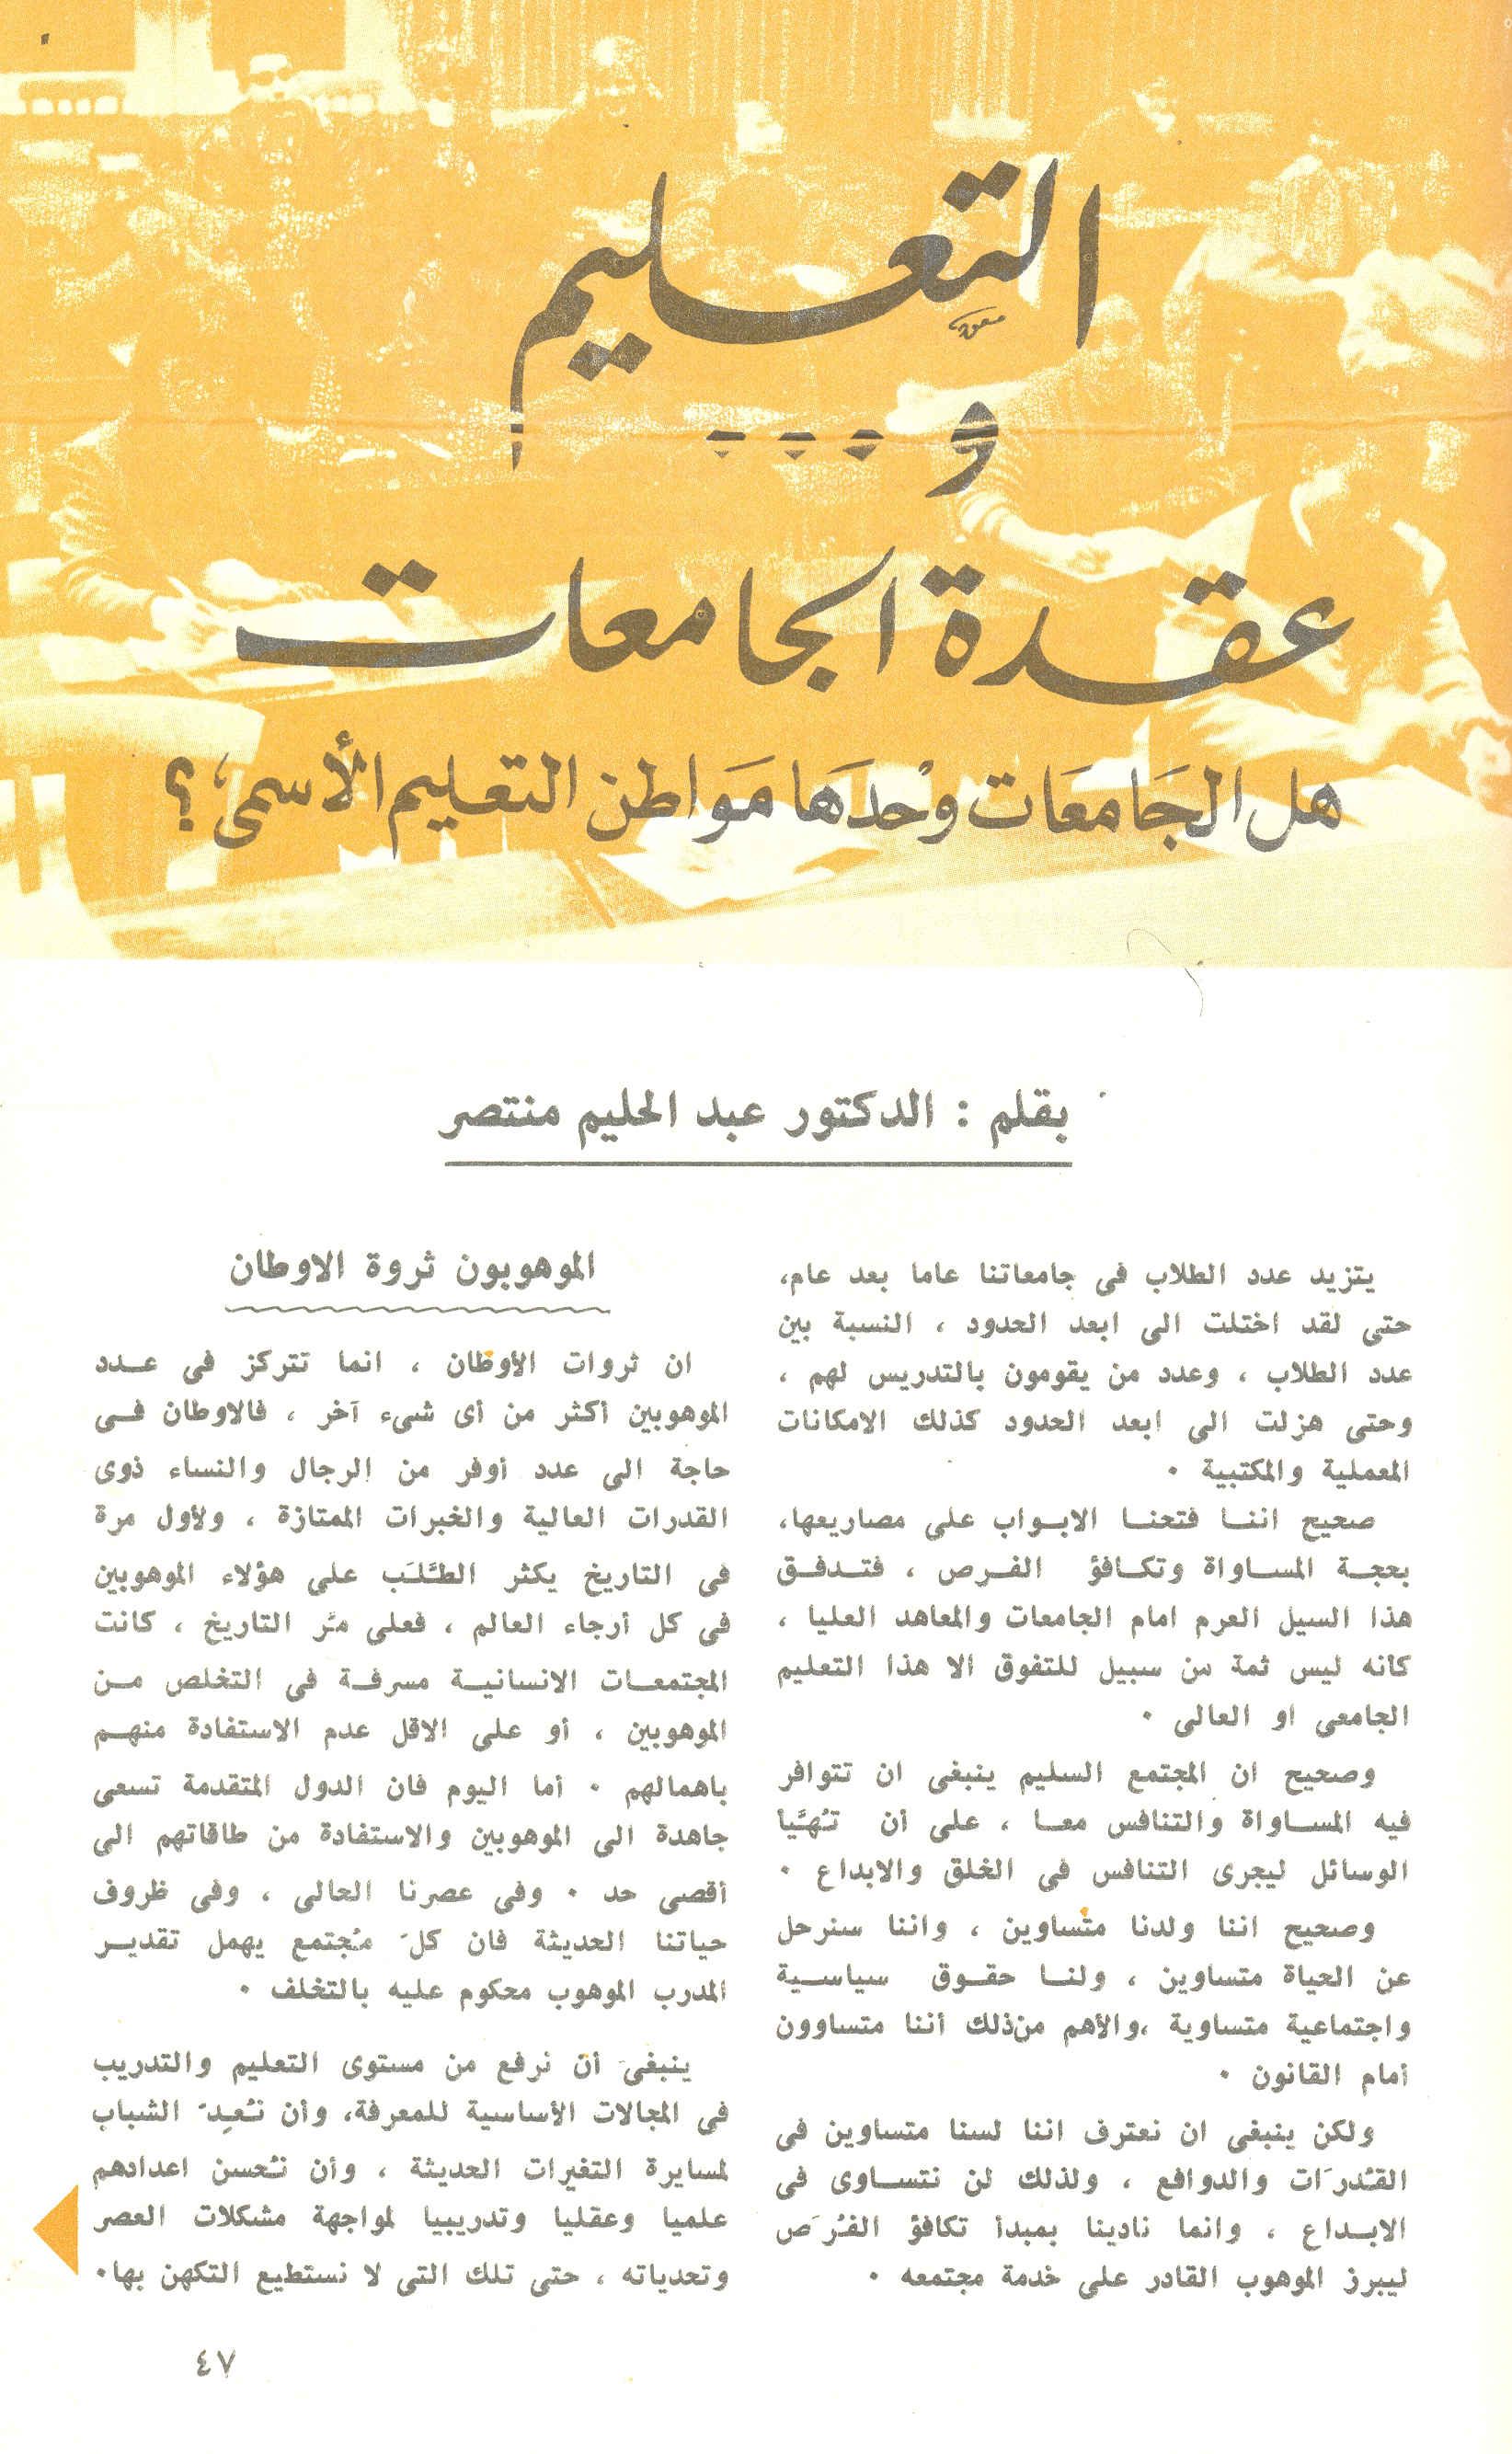 التعليم
و . . .
عقدة الجامعات
هل الجَامعَات وحْدهَا مَوَاطن التعليم الأسمى؟
بقلم : الدكتور عبد الحليم منتصر
يتزيد عدد الطلاب فى جامعاتنا عاما بعد عام،
حتى لقد اختلت الى ابعد الحدود ، النسبة بين
عدد الطلاب ، وعدد من يقومون بالتدريس لهم ،
وحتى هزلت الى ابعد الحدود كذلك الامكانات
المعملية والمكتبية ٠
صحيح اننا فتحنا الابواب على مصاريعها،
بحجة المساواة وتكافؤ الفرص ، فتدفق
هذا السيل العرم امام الجامعات والمعاهد العليا ،
كانه ليس ثمة من سبيل للتفوق الا هذا التعليم
الجامعى او العالى ٠
وصحيح ان المجتمع السليم ينبغى ان تتوافر
فيه المساواة والتنافس معا ، على أن تُهيَّأ
الوسائل ليجرى التنافس فى الخلق والابداع ٠
وصحيح اننا ولدنا متساوين ، واننا سنرحل
عن الحياة متساوين ، ولنا حقوق سياسية
واجتماعية متساوية ،والأهم من ذلك أننا متساوون
أمام القانون ٠
ولكن ينبغى ان نعترف اننا لسنا متساوين فى
القُدرَات والدوافع ، ولذلك لن نتساوى فى
الابداع ، وانما نادينا بمبدأ تكافؤ الفُرَص
ليبرز الموهوب القادر على خدمة مجتمعه ٠
الموهوبون ثروة الاوطان
ان ثروات الأوطان ، انما تتركز فى عدد
الموهوبين أكثر من أى شىء آخر ، فالاوطان فى
حاجة الى عدد أوفر من الرجال والنساء ذوى
القدرات العالية والخبرات الممتازة ، ولأول مرة
فى التاريخ يكثر الطَّلَب على هؤلاء الموهوبين
فى كل أرجاء العالم ، فعلى مَر التاريخ ، كانت
المجتمعات الانسانية مسرفة فى التخلص من
الموهوبين ، أو على الاقل عدم الاستفادة منهم
باهمالهم ٠ أما اليوم فان الدول المتقدمة تسعى
جاهدة الى الموهوبين والاستفادة من طاقاتهم الى
أقصى حد ٠ وفى عصرنا الحالى ، وفى ظروف
حياتنا الحديثة فان كلّ مُجتمع يهمل تقدير
المدرب الموهوب محكوم عليه بالتخلف ٠
ينبغى أن نرفع من مستوى التعليم والتدريب
فى المجالات الأساسية للمعرفة، وأن نُعِدّ الشباب
لمسايرة التغيرات الحديثة ، وأن نُحسن اعدادهم
علميا وعقليا وتدريبيا لمواجهة مشكلات العصر
وتحدياته ، حتى تلك التى لا نستطيع التكهن بها٠
٤٧